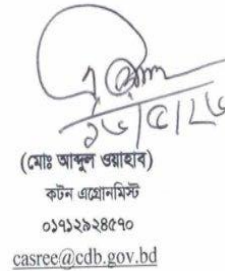 (মোঃ আব্দুল ওয়াহাব)
কটন এগ্রোনমিস্ট
০১৭১২৯২৪৫৭০
casree@cdb.gov.bd